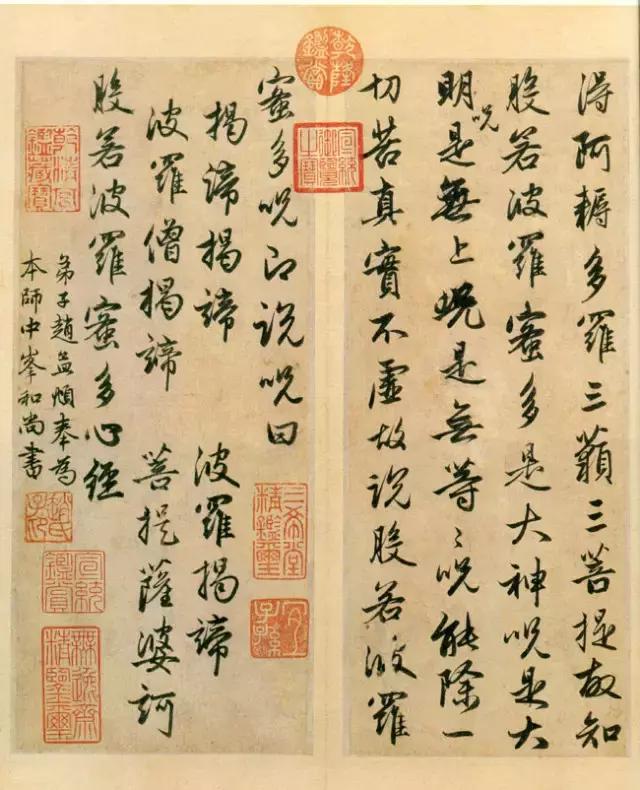 得阿耨多羅三藐三菩提故知
般若波羅蜜多是大神呪是大
明呪是無上呪是無等〻呪能除一
切苦真實不虛故說般若波羅
蜜多呪即說呪曰
揭諦揭諦　波羅揭諦
波羅僧揭諦　菩提薩婆訶
般若波羅蜜多心經
弟子趙孟頫奉為
本師中峯和尚書
乾隆鑑賞
宣統御覽之寶
三希堂精鑑璽
宜子孫
乾清宮鑑藏寶
趙氏子昂
宣統鑑賞
無逸齋精鑒璽